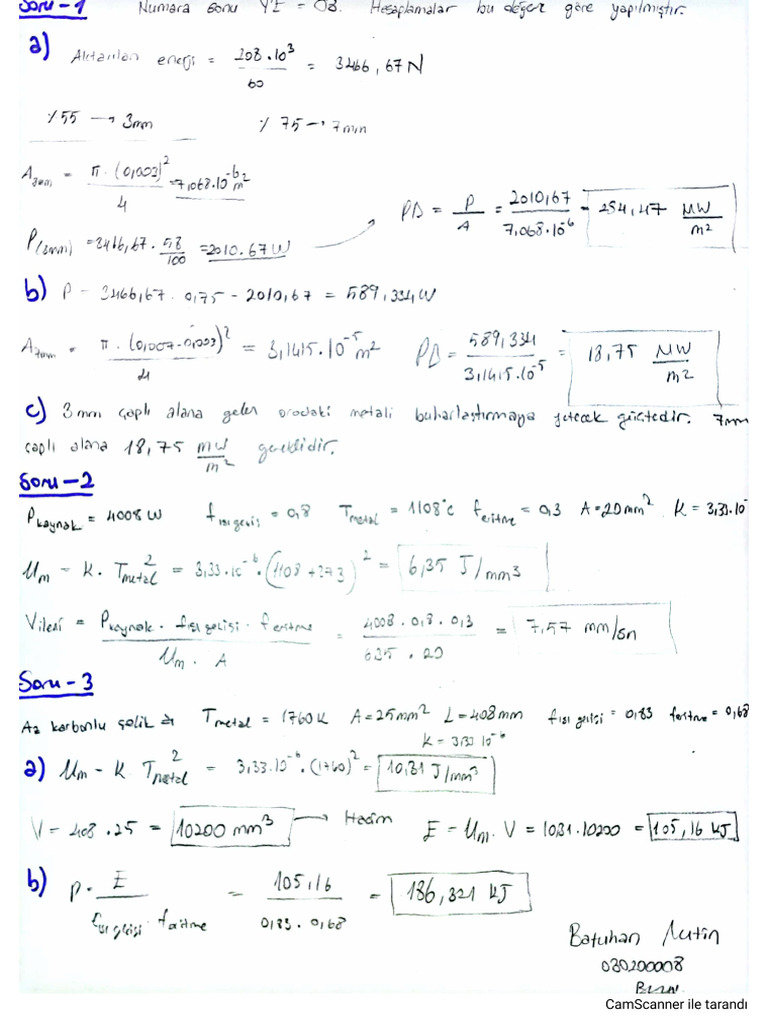 Soru-1 Numara sonu YZ = 08. Hesaplamalar bu değer göre yapılmıştır.
a) Aktarılan enerji = 208.10³ / 60 = 3466,67 N
% 55 → 3mm % 75 → 7mm
A = π.(0,003)² / 4 = 7,068.10⁻⁶ m²
P(3mm) = 3466,67 . 58/100 = 2010.67 W → PD = P/A = 2010,67 / 7,068.10⁻⁶ = 284,47 MW/m²
b) P = 3466,67 . 0,75 - 2010,67 = 589,334 W
A = π.(0,007-0,003)² / 4 = 3,1415.10⁻⁵ m² PD = 589,334 / 3,1415.10⁻⁵ = 18,75 MW/m²
c) 3mm çaplı alana gelen oradaki metali buharlaştırmaya yetecek güçtedir. 7mm
çaplı alana 18,75 MW/m² gereklidir.
Soru-2
Pkaynak = 4008 W fısı geçiş = 0,8 Tmetal = 1108°C feritme = 0,3 A=20mm² K = 3,33.10⁻
Um = K. Tmetal² = 3,33.10⁻⁶.(1108+273)² = 6,35 J/mm³
Vilesi = Pkaynak . fısı gelişi . feritme / Um . A = 4008 . 0,8 . 0,3 / 635 . 20 = 7,57 mm/sn
Soru-3
Az karbonlu çelik ⇒ Tmetal = 1760K A=25mm² L=408mm fısı gelişi = 0,83 feritme = 0,68
K = 3,33 10⁻⁶
a) Um = K. Tmetal² = 3,33.10⁻⁶.(1760)² = 10,31 J/mm³
V = 408 . 25 = 10200 mm³ → Hacim E = Um. V = 1031.10200 = 105,16 kJ
b) P = E / fısı gelişi . feritme = 105,16 / 0,83 . 0,68 = 186,321 kJ
Batuhan
030200008
CamScanner ile tarandı